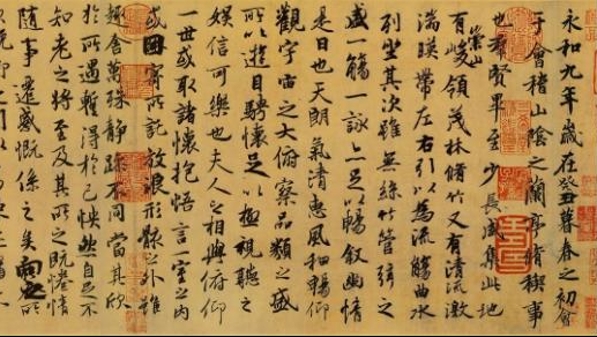 永和九年歲在癸丑暮春之初會
于會稽山陰之蘭亭脩稧事
也群賢畢至少長咸集此地
有崇山峻領茂林脩竹又有清流激
湍暎帶左右引以為流觴曲水
列坐其次雖無絲竹管弦之
盛一觴一詠亦足以暢敘幽情
是日也天朗氣清惠風和暢仰
觀宇宙之大俯察品類之盛
所以遊目騁懷足以極視聽之
娛信可樂也夫人之相與俯仰
一世或取諸懷抱悟言一室之內
或因寄所託放浪形骸之外雖
趣舍萬殊靜躁不同當其欣
於所遇暫得於己怏然自足不
知老之將至及其所之既惓情
隨事遷感慨係之矣向之所